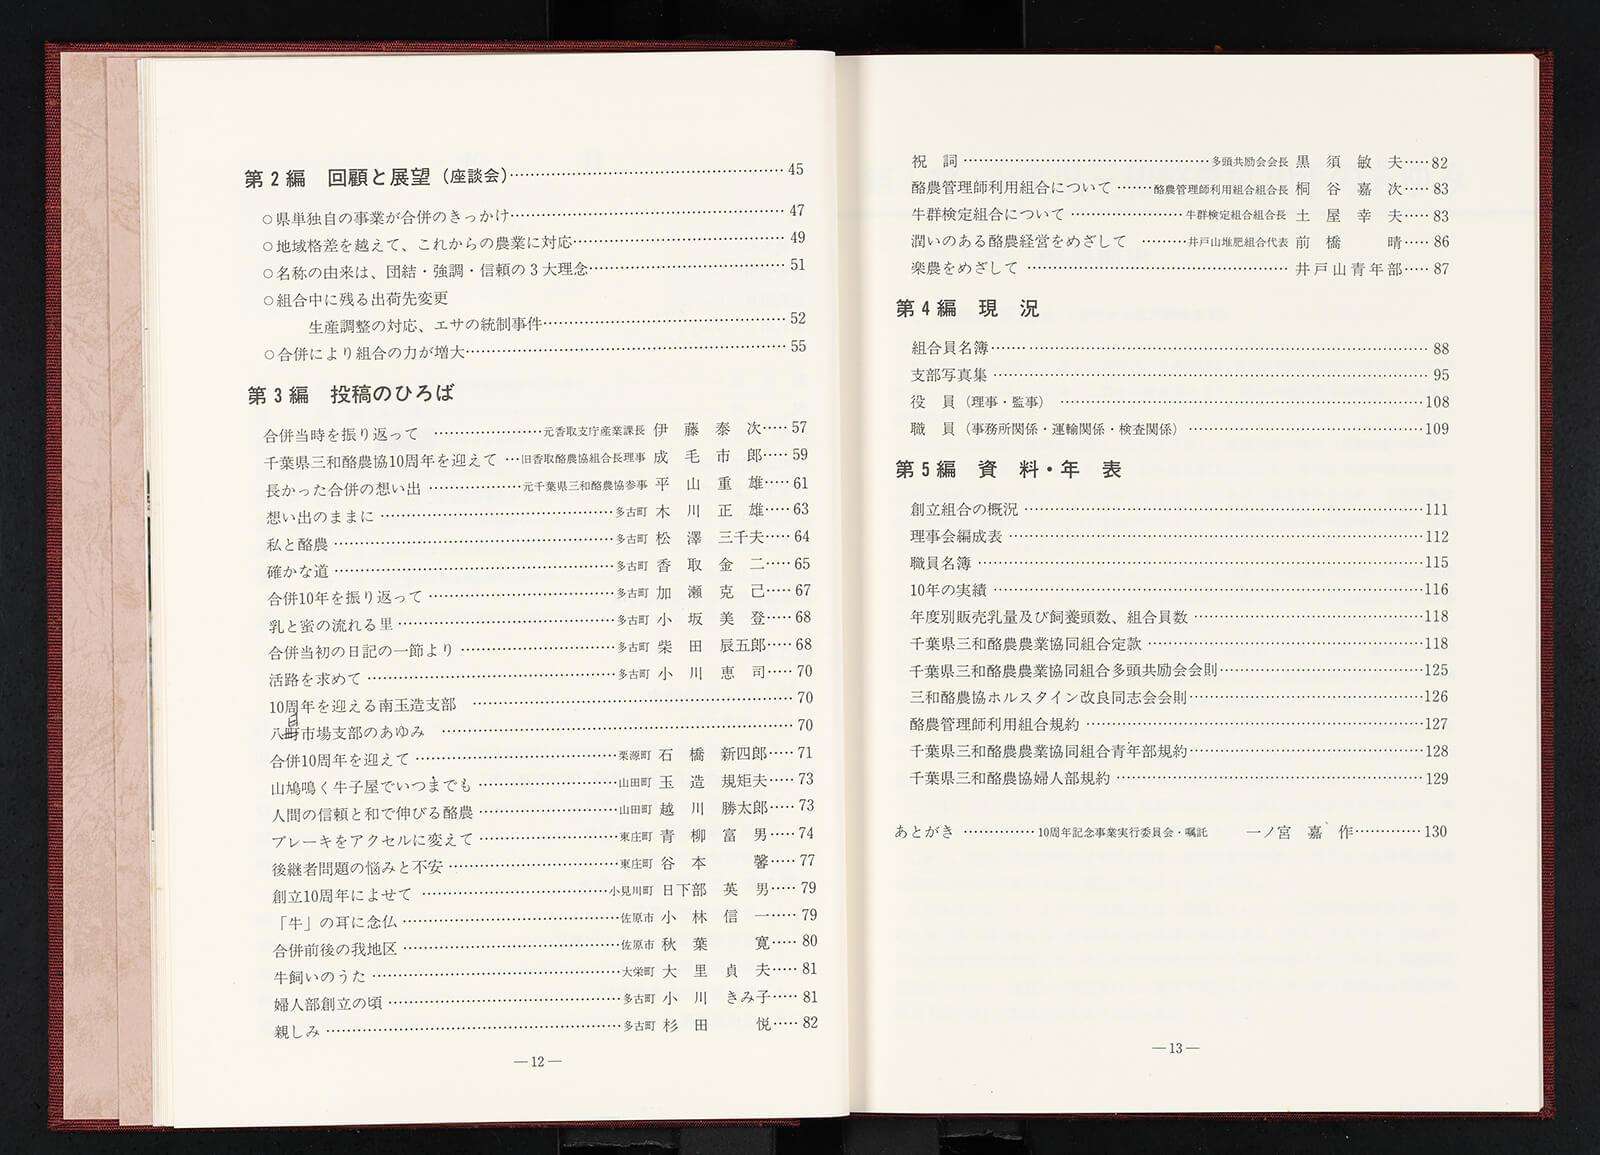 第2編 回顧と展望(座談会)……45
○県単独自の事業が合併のきっかけ……47
○地域格差を越えて、これからの農業に対応……49
○名称の由来は、団結・強調・信頼の3大理念……51
○組合中に残る出荷先変更
生産調整の対応、エサの統制事件……52
○合併により組合の力が増大……55
第3編 投稿のひろば
合併当時を振り返って……元香取支庁産業課長 伊藤泰次……57
千葉県三和酪農協10周年を迎えて…旧香取酪農協組合長理事 成毛市郎……59
長かった合併の想い出……元千葉県三和酪農協参事 平山重雄……61
想い出のままに……多古町 木川正雄……63
私と酪農……多古町 松澤三千夫……64
確かな道……多古町 香取金二……65
合併10年を振り返って……多古町 加瀬克己……67
乳と蜜の流れる里……多古町 小坂美登……68
合併当初の日記の一節より……多古町 柴田辰五郎……68
活路を求めて……多古町 小川恵司……70
10周年を迎える南玉造支部……70
八日町市場支部のあゆみ……70
合併10周年を迎えて……栗源町 石橋新四郎……71
山鳩鳴く牛子屋でいつまでも……山田町 玉造規矩夫……73
人間の信頼と和で伸びる酪農……山田町 越川勝太郎……73
ブレーキをアクセルに変えて……東庄町 青柳富男……74
後継者問題の悩みと不安……東庄町 谷本馨……77
創立10周年によせて……小見川町 日下部英男……79
「牛」の耳に念仏……佐原市 小林信一……79
合併前後の我地区……佐原市 秋葉寛……80
牛飼いのうた……大栄町 大里貞夫……81
婦人部創立の頃……多古町 小川きみ子……81
親しみ……多古町 杉田悦……82
—12—
祝詞……多頭共励会会長 黒須敏夫……82
酪農管理師利用組合について……酪農管理師利用組合組合長 桐谷嘉次……83
牛群検定組合について……牛群検定組合組合長 土屋幸夫……83
潤いのある酪農経営をめざして……井戸山堆肥組合代表 前橋晴……86
楽農をめざして……井戸山青年部……87
第4編 現況
組合員名簿……88
支部写真集……95
役員(理事・監事)……108
職員(事務所関係・運輸関係・検査関係)……109
第5編 資料・年表
創立組合の概況……111
理事会編成表……112
職員名簿……115
10年の実績……116
年度別販売乳量及び飼養頭数、組合員数……118
千葉県三和酪農農業協同組合定款……118
千葉県三和酪農農業協同組合多頭共励会会則……125
三和酪農協ホルスタイン改良同志会会則……126
酪農管理師利用組合規約……127
千葉県三和酪農農業協同組合青年部規約……128
千葉県三和酪農協婦人部規約……129
あとがき……10周年記念事業実行委員会・嘱託 一ノ宮嘉作……130
—13—